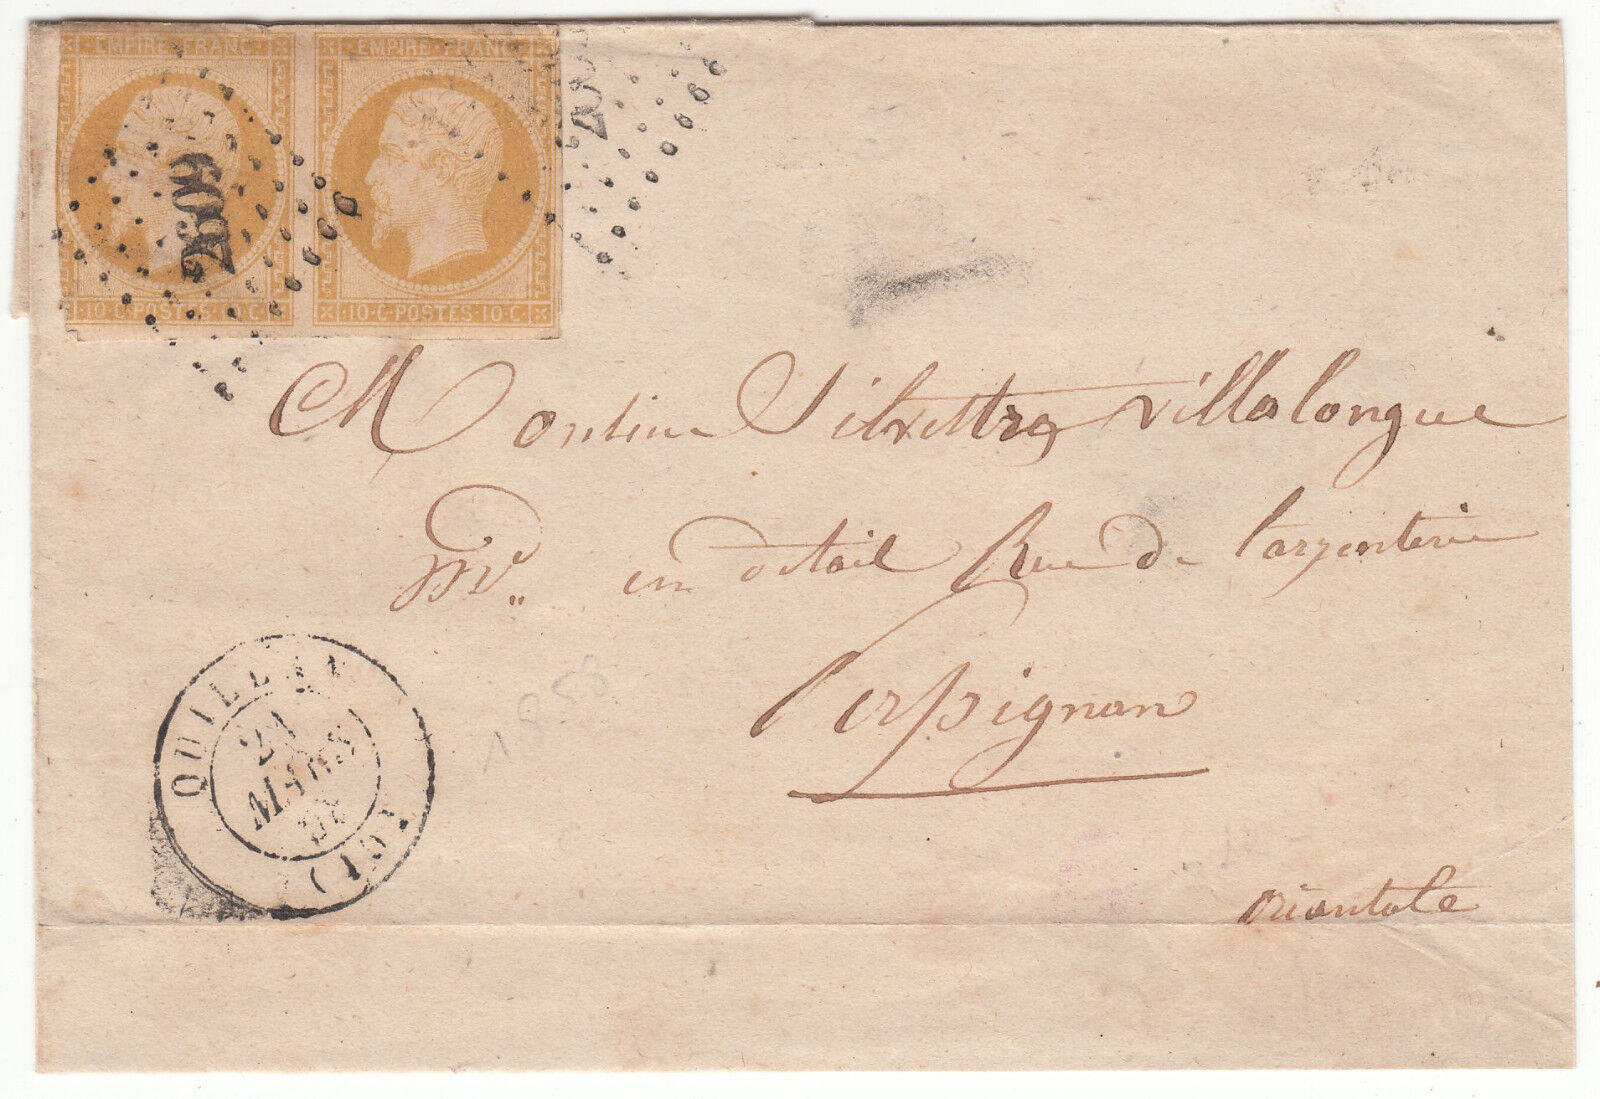 EMPIRE FRANC EMPIRE FRANC
2609
10·C·POSTES·10·C· 10·C·POSTES·10·C·
Monsieur Silvestre Villalongue
en detail Rue de l'argenterie
Perpignan
QUILLAN
21
MARS
58
1858
orientale